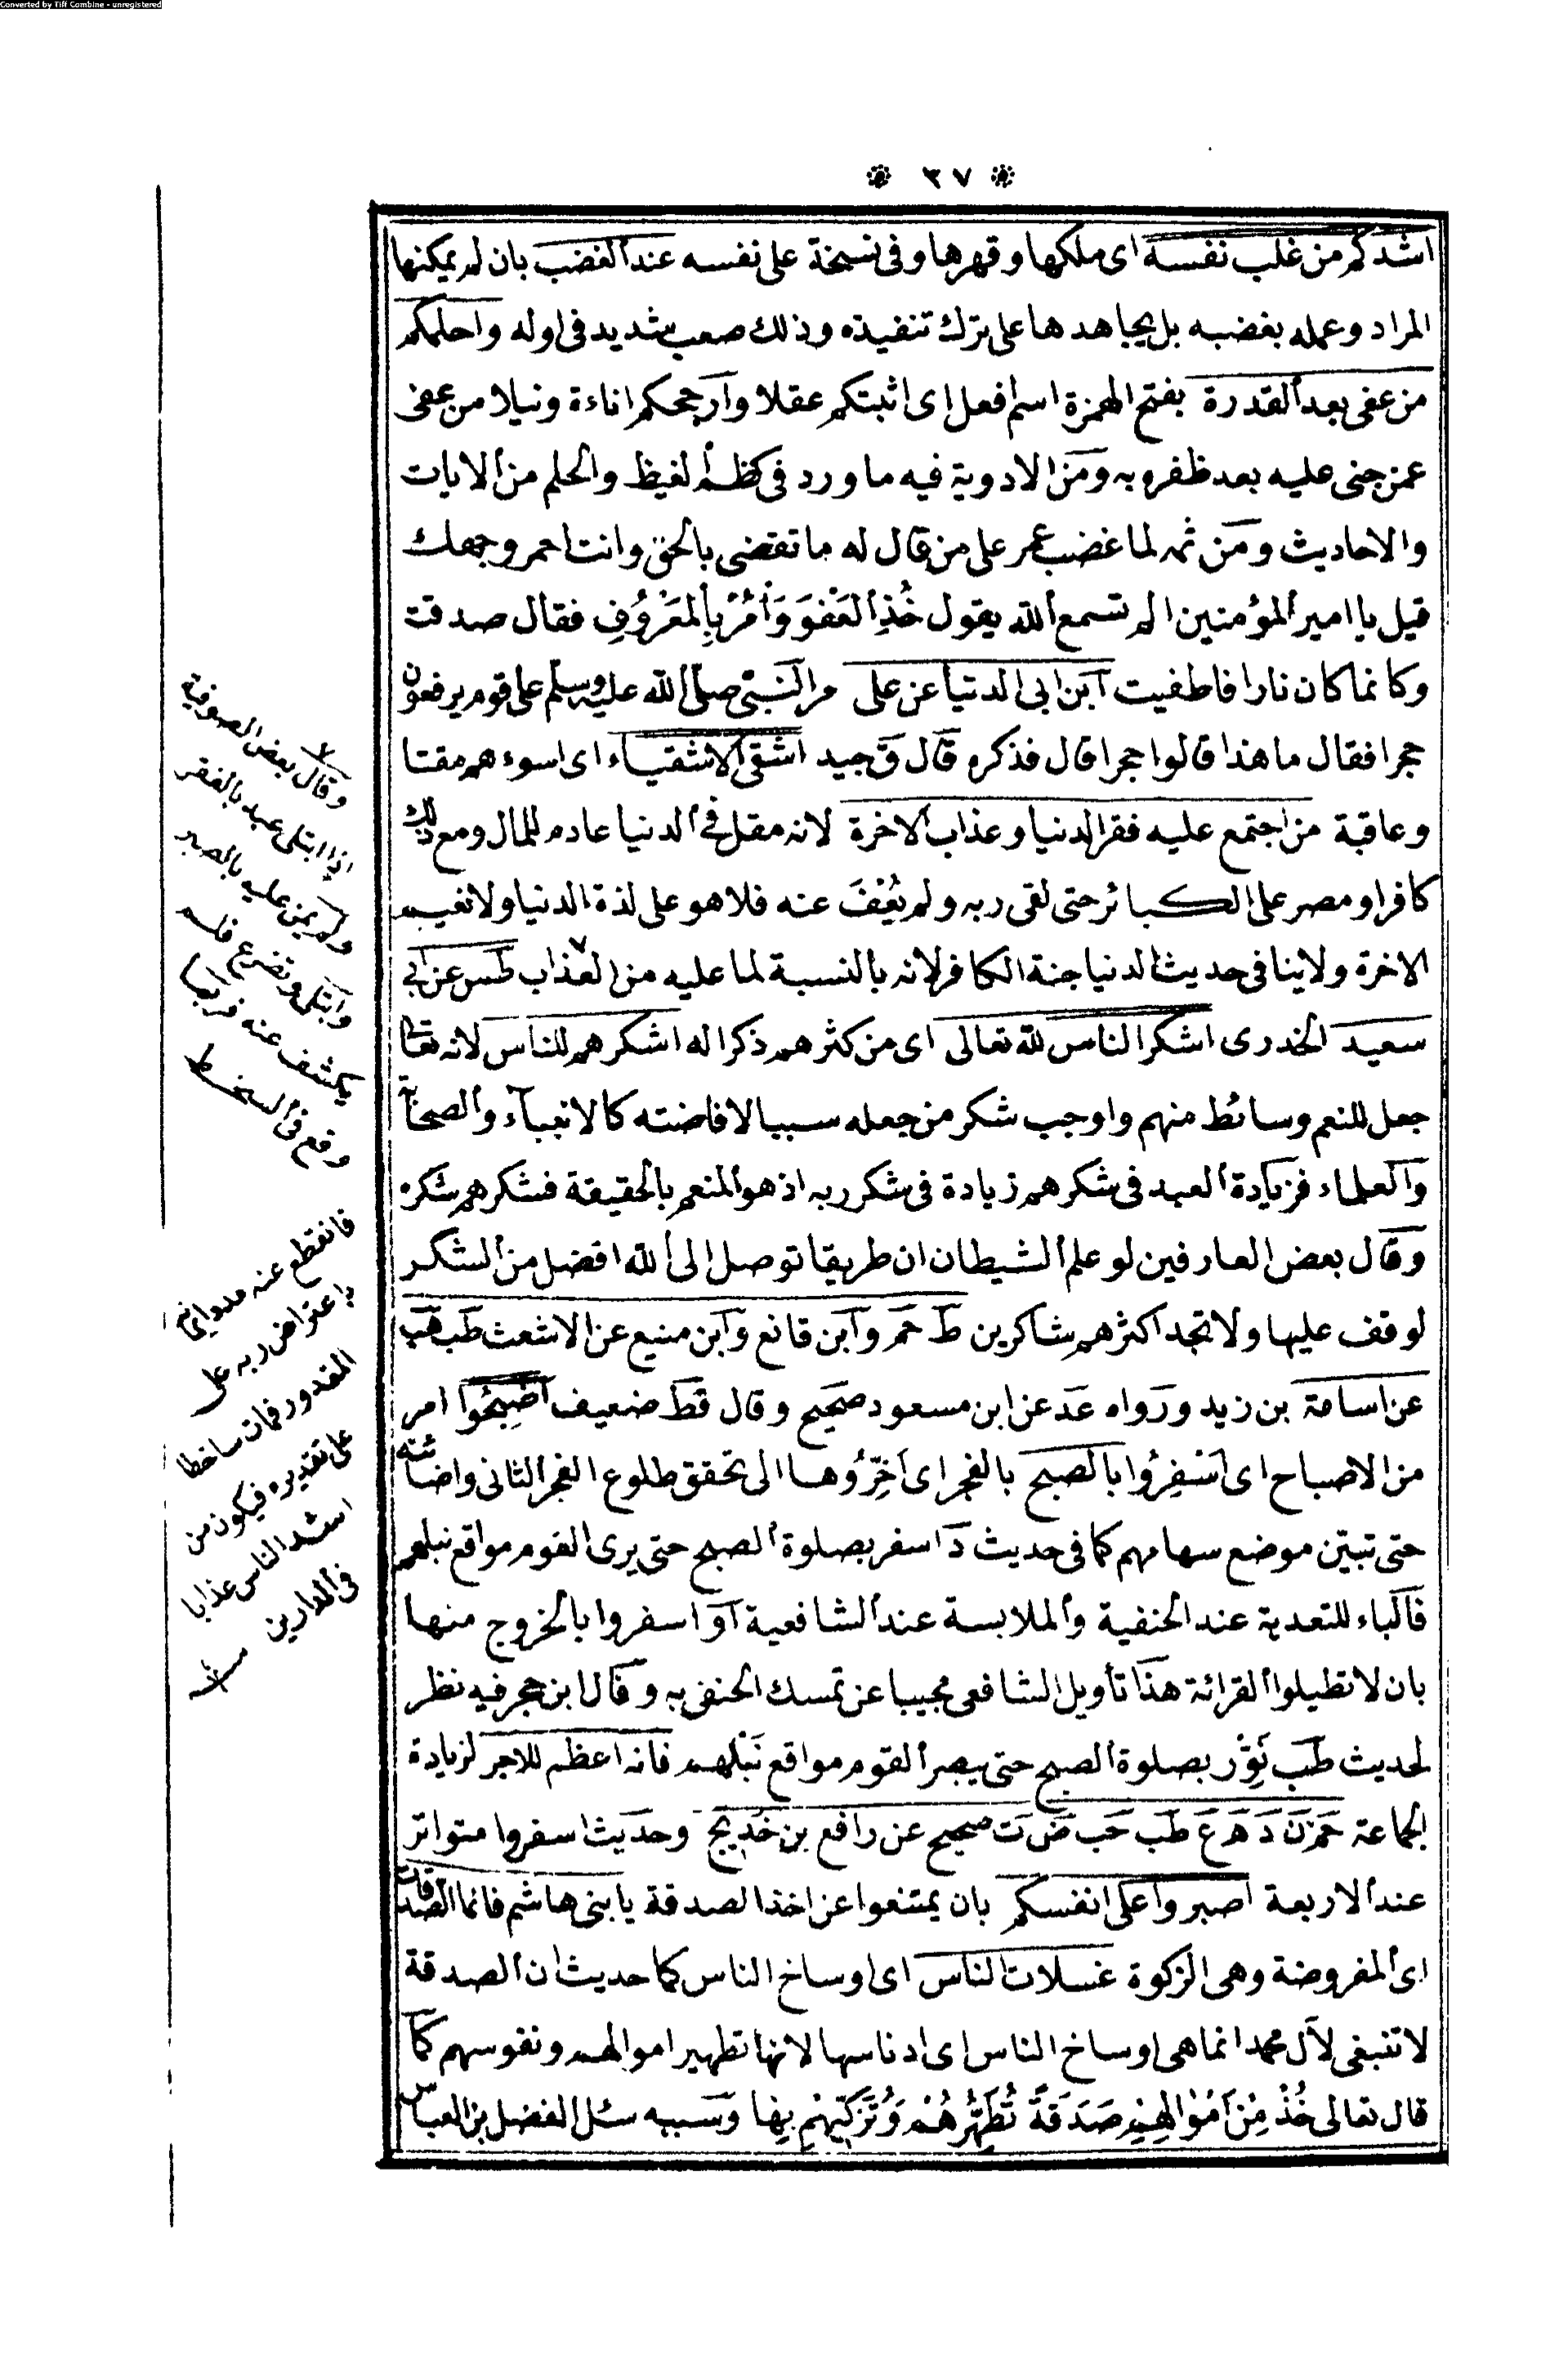 Converted by Tiff Combine - unregistered
٣٧
اشدكم من غلب نفسه اى ملكها وقهرها وفى نسخة على نفسه عند الغضب بان لم يمكنها
المراد وعمله بغضبه بل يجاهدها على ترك تنفيذه وذلك صعب شديد فى اوله واحلمكم
من عفى بعد القدرة بفتح الهمزة اسم افعل اى اثبتكم عقلا وارجحكم اناءة ونيلا من عفى
عمن جنى عليه بعد ظفره به ومن الادوية فيه ما ورد فى كظم الغيظ والحلم من الايات
والاحاديث ومن ثمه لما غضب عمر على من قال له ما تقضى بالحق وانت احمر وجهك
قيل يا امير المؤمنين الم تسمع الله يقول خُذِ الْعَفْوَ وَأْمُرْ بِالْمَعْرُوفِ فقال صدقت
وكانما كان نارا فاطفيت ابن ابى الدنيا عن على مر النبى صلى الله عليه وسلم على قوم يرفعون
حجرا فقال ما هذا قالوا حجرا قال فذكره قال ق جيد اشقى الاشقياء اى اسوءهم مقتا
وعاقبة من اجتمع عليه فقر الدنيا وعذاب الاخرة لانه مقل فى الدنيا عادم للمال ومع ذلك
كافرا ومصر على الكبائر حتى لقى ربه ولم يُعْفَ عنه فلا هو على لذة الدنيا ولا نعيم
الاخرة ولا ينافى حديث الدنيا جنة الكافر لانه بالنسبة لما عليه من العذاب ٧ طس عن ابى
سعيد الخدرى اشكر الناس لله تعالى اى من كثرهم ذكرا له اشكرهم للناس لانه تعالى
جعل للنعم وسائط منهم واوجب شكر من جعله سببا لافاضته كالانبياء والصحابة
والعلماء فزيادة العبد فى شكرهم زيادة فى شكر ربه اذ هو المنعم بالحقيقة فشكرهم شكره
وقال بعض العارفين لو علم الشيطان ان طريقا توصل الى الله افضل من الشكر
لوقف عليها ولا تجد اكثرهم شاكرين ط حم وابن قانع وابن منيع عن الاشعث طب هب
عن اسامة بن زيد ورواه عد عن ابن مسعود صحيح وقال قط ضعيف اَصْبِحُوا امر
من الاصباح اى اَسْفِرُوا بالصبح بالفجر اى اَخِّرُوها الى تحقق طلوع الفجر الثانى واضائته
حتى تبيّن موضع سهامهم كما فى حديث د اسفر بصلوة الصبح حتى يرى القوم مواقع نبلهم
فالباء للتعدية عند الحنفية والملابسة عند الشافعية او اسفروا بالخروج منها
بان لا تطيلوا القرائة هذا تأويل الشافعى مجيبا عن تمسك الحنفى به وقال ابن حجر فيه نظر
لحديث طب نَوِّر بصلوة الصبح حتى يبصر القوم مواقع نَبْلهم فانه اعظم للاجر لزيادة
الجماعة حم ن د ه ع طب حب ض ت صحيح عن رافع بن خديج وحديث اسفروا متواتر
عند الاربعة اصبروا على انفسكم بان يمتنعوا عن اخذ الصدقة يا بنى هاشم فانما الصدقات
اى المفروضة وهى الزكوة غسلات الناس اى اوساخ الناس كما حديث ان الصدقة
لا تنبغى لآل محمد انما هى اوساخ الناس اى ادناسها لانها تطهير اموالهم ونفوسهم كما
قال تعالى خُذْ مِنْ اَمْوَالِهِمْ صَدَقَةً تُطَهِّرُهُمْ وَتُزَكِّيهِمْ بِهَا وسببه سئل الفضل بن العباس
٧
وقال بعض الصوفية
اذا ابتلى عبد بالفقر
ولم يمن عليه بالصبر
وابتلى وتضرع فلم
يكشف عنه فربما
وقع فى السخط
فانقطع عنه
باعتراض ربه على
المقدور فمات ساخطا
على تقديره فيكون من
اشد الناس عذابا
فى الدارين